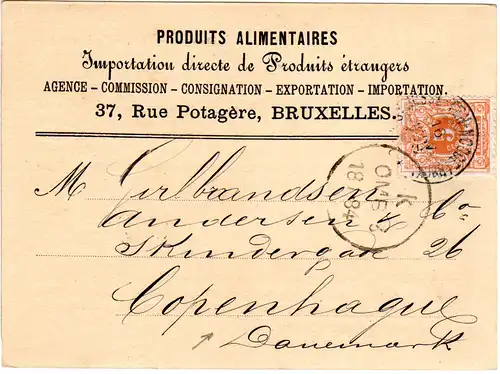 PRODUITS ALIMENTAIRES
Importation directe de Produits étrangers
AGENCE – COMMISSION – CONSIGNATION – EXPORTATION – IMPORTATION.
37, Rue Potagère, BRUXELLES.
M Gerlbrandsen
Andersen & Co
Skindergade 26
Copenhague
Danemark
K
OMB
18 84
5